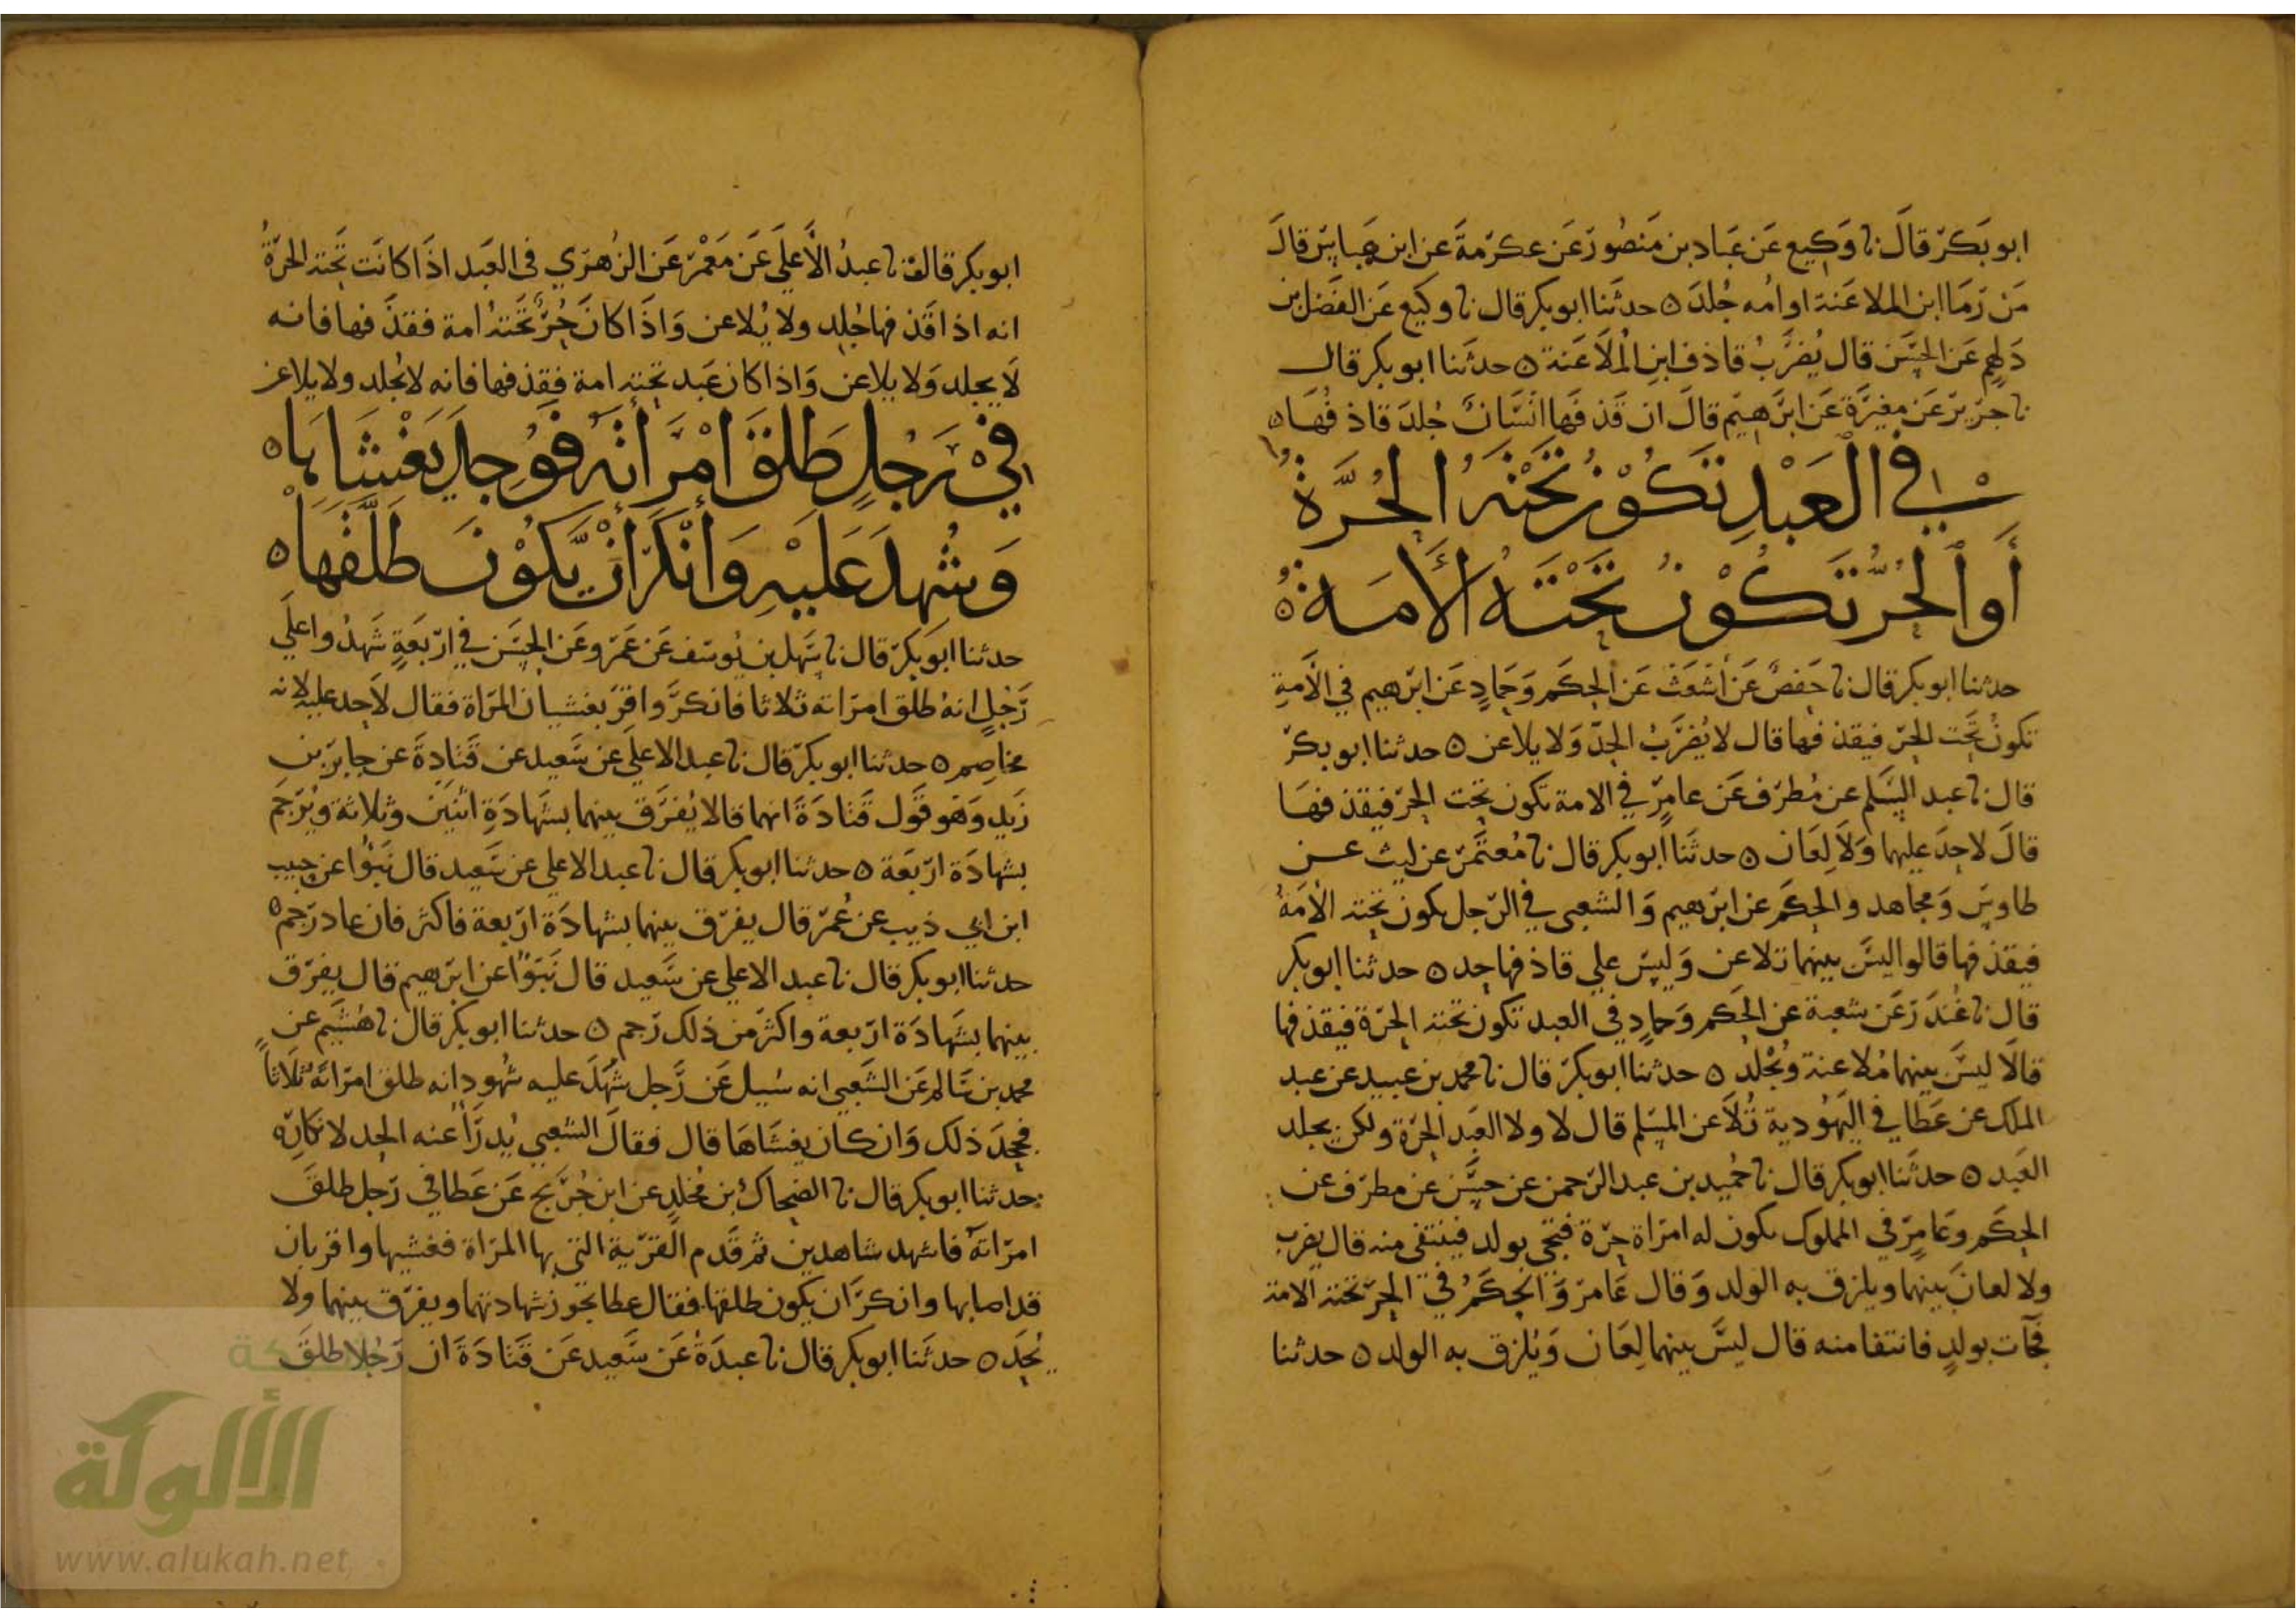 ابو بكر قال نا وكيع عن عباد بن منصور عن عكرمة عن ابن عباس قال
من رما ابن الملاعنة او امه جلد ه حدثنا ابو بكر قال نا وكيع عن الفضل بن
دلهم عن الحسن قال يضرب قاذف ابن الملاعنة ه حدثنا ابو بكر قال
نا جرير عن مغيرة عن ابرهيم قال ان قذفها انسان جلد قاذفها ه
في العبد تكون تحته الحرة
أو الحر تكون تحته الأمة ه
حدثنا ابو بكر قال نا حفص عن أشعث عن الحكم وحماد عن ابرهيم في الأمة
تكون تحت الحر فيقذفها قال لا يضرب الحد ولا يلاعن ه حدثنا ابو بكر
قال نا عبد السلم عن مطرف عن عامر في الامة تكون تحت الحر فيقذفها
قال لا حد عليها ولا لعان ه حدثنا أبو بكر قال نا معتمر عن ليث عن
طاوس ومجاهد والحكم عن ابرهيم والشعبي في الرجل يكون تحته الأمة
فيقذفها قالوا ليس بينهما تلاعن وليس علي قاذفها حد ه حدثنا ابو بكر
قال نا غندر عن شعبة عن الحكم وحماد في العبد تكون تحته الحرة فيقذفها
قالا ليس بينهما ملاعنة ويجلد ه حدثنا ابو بكر قال نا محمد بن عبيد عن عبد
الملك عن عطا في اليهودية تلاعن المسلم قال لا ولا العبد الحرة ولكن يجلد
العبد ه حدثنا ابو بكر قال نا حميد بن عبد الرحمن عن حسن عن مطرف عن
الحكم وعامر في المملوك يكون له امراة حرة فتجي بولد فينتفي منه قال يضرب
ولا لعان بينهما ويلزق به الولد وقال عامر والحكم في الحر تحته الامة
فجآت بولد فانتفا منه قال ليس بينهما لعان ويلزق به الولد ه حدثنا
ابو بكر قال نا عبد الأعلي عن معمر عن الزهري في العبد اذا كانت تحته الحرة
انه اذا قذفها جلد ولا يلاعن واذا كان حر تحته امة فقذفها فانه
لا يجلد ولا يلاعن واذا كان عبد تحته امة فقذفها فانه لا يجلد ولا يلاعن
في رجل طلق امرأته فوجل يغشاها ه
وشهد عليه وأنكر أن يكون طلقها ه
حدثنا ابو بكر قال نا سهل بن يوسف عن عمرو عن الحسن في اربعة شهدوا علي
رجل انه طلق امراته ثلاثا فانكر واقر بغشيان المراة فقال لا حد عليه لانه
مخاصم ه حدثنا ابو بكر قال نا عبد الاعلي عن سعيد عن قتادة عن جابر بن
زيد وهو قول قتادة انهما قالا يفرق بينهما بشهادة اثنين وثلاثة ويرجم
بشهادة اربعة ه حدثنا ابو بكر قال نا عبد الاعلي عن سعيد قال نبؤا عن حبيب
ابن ابي ذيب عن عمر قال يفرق بينهما بشهادة اربعة فاكثر فان عاد رجم ه
حدثنا ابو بكر قال نا عبد الاعلي عن سعيد قال نبؤا عن ابرهيم قال يفرق
بينهما بشهادة اربعة واكثر من ذلك رجم ه حدثنا ابو بكر قال نا هشيم عن
محمد بن سالم عن الشعبي انه سيل عن رجل شهد عليه شهود انه طلق امراته ثلاثا
فجحد ذلك وان كان يغشاها قال فقال الشعبي يدرأ عنه الحد لانكاره
حدثنا ابو بكر قال نا الضحاك بن مخلد عن ابن جريج عن عطا في رجل طلق
امراته فاشهد شاهدين ثم قدم القرية التي بها المراة فغشيها واقر بان
قد اصابها وانكر ان يكون طلقها فقال عطا تجوز شهادتهما ويفرق بينهما ولا
يحد ه حدثنا ابو بكر قال نا عبدة عن سعيد عن قتادة ان رجلا طلق
الألوكة
www.alukah.net